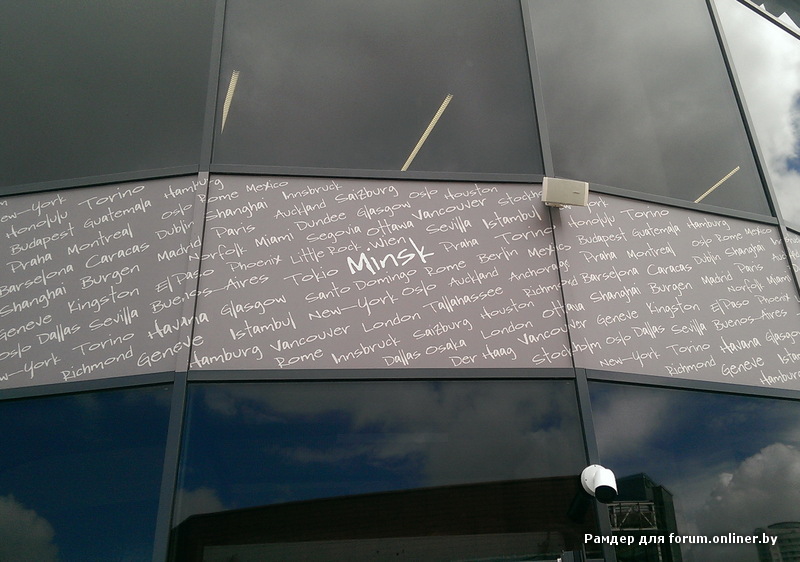 New-York Torino Hamburg Rome Mexico Innsbruck Saizburg Oslo Houston Stockholm
Honolulu Guatemala Oslo Shanghai Auckland Glasgow Vancouver Istambul Honolulu Torino
Budapest Montreal Dublin Paris Dundee Ottawa Sevilla Torino Budapest Guatemala Hamburg
Praha Caracas Madrid Norfolk Miami Segovia Wien Praha Mexico Praha Montreal Oslo Rome Mexico
Barselona Burgen ElPaso Phoenix Little Rock Minsk Rome Berlin Barselona Caracas Dublin Shanghai
Shanghai Kingston Buenos-Aires Tokio Santo Domingo Auckland Anchorage Shanghai Burgen Madrid Paris
Geneve Sevilla Havana Glasgow New-York Oslo Tallahassee Richmond Geneve Kingston Norfolk Miami
Oslo Dallas Istambul London Saizburg Houston Ottawa Oslo Dallas Sevilla ElPaso Phoenix
New-York Richmond Geneve Vancouver Dallas Osaka London Stockholm New-York Torino Buenos-Aires
Hamburg Rome Innsbruck Der Haag Richmond Havana Glasgow
Geneve
Hamburg
Рамдер для forum.onliner.by